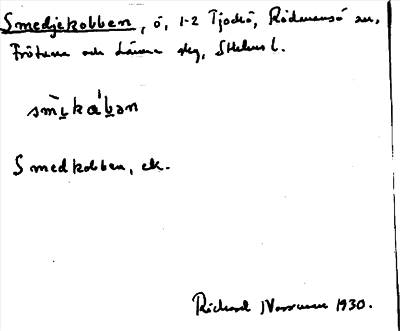 Smedjekobben, ö, 1-2 Tjockö, Rådmansö sn,
Frötuna och Länna skg, Sthlms l.
smìkában
Smedkobben, ek.
Richard 1930.